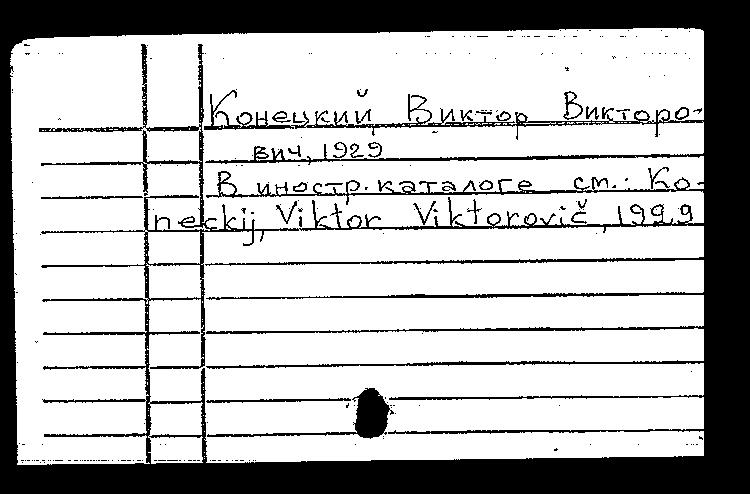 Конецкий, Виктор Викторо-
вич, 1929
В иностр. каталоге см.: Ko-
neckij, Viktor Viktorovič, 1929